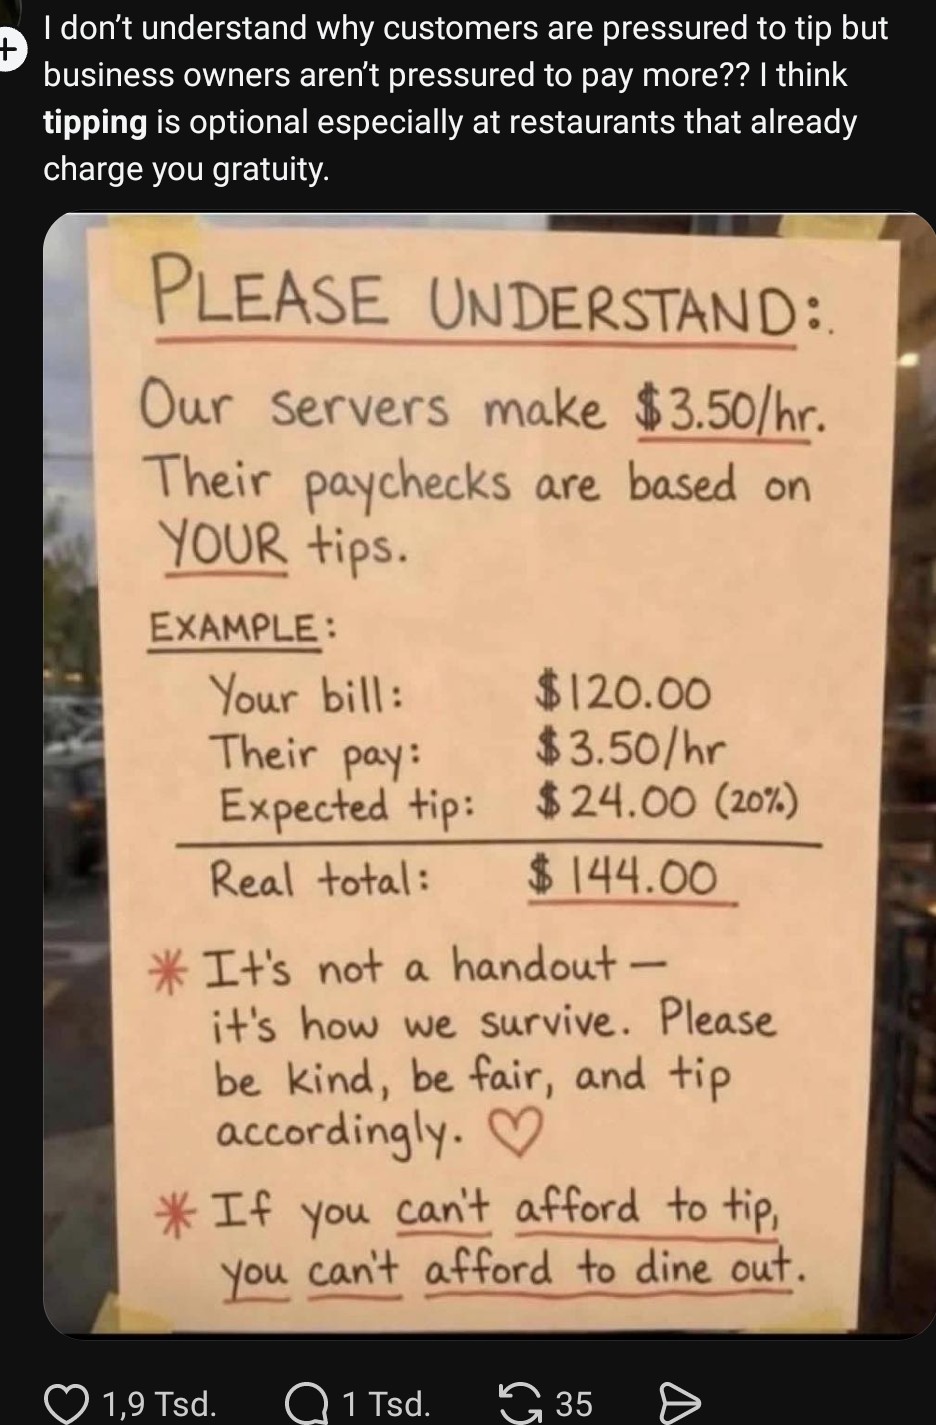 I don’t understand why customers are pressured to tip but
business owners aren’t pressured to pay more?? I think
tipping is optional especially at restaurants that already
charge you gratuity.
PLEASE UNDERSTAND:.
Our servers make $3.50/hr.
Their paychecks are based on
YOUR tips.
EXAMPLE:
Your bill: $120.00
Their pay: $3.50/hr
Expected tip: $24.00 (20%)
Real total: $144.00
* It's not a handout —
it's how we survive. Please
be kind, be fair, and tip
accordingly. ♡
* If you can't afford to tip,
you can't afford to dine out.
1,9 Tsd. 1 Tsd. 35